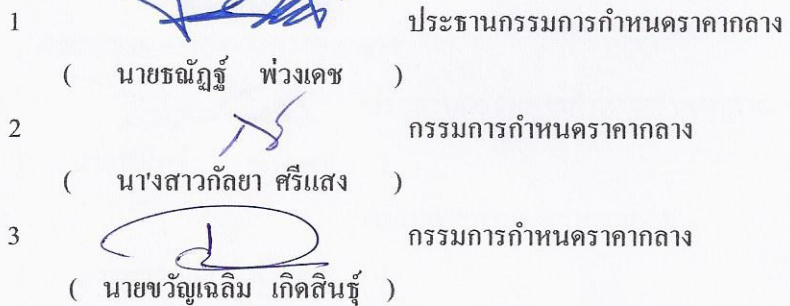 1 ประธานกรรมการกำหนดราคากลาง
( นายธณัฏฐ์ พ่วงเดช )
2 กรรมการกำหนดราคากลาง
( นา'งสาวกัลยา ศรีแสง )
3 กรรมการกำหนดราคากลาง
( นายขวัญเฉลิม เกิดสินธุ์ )